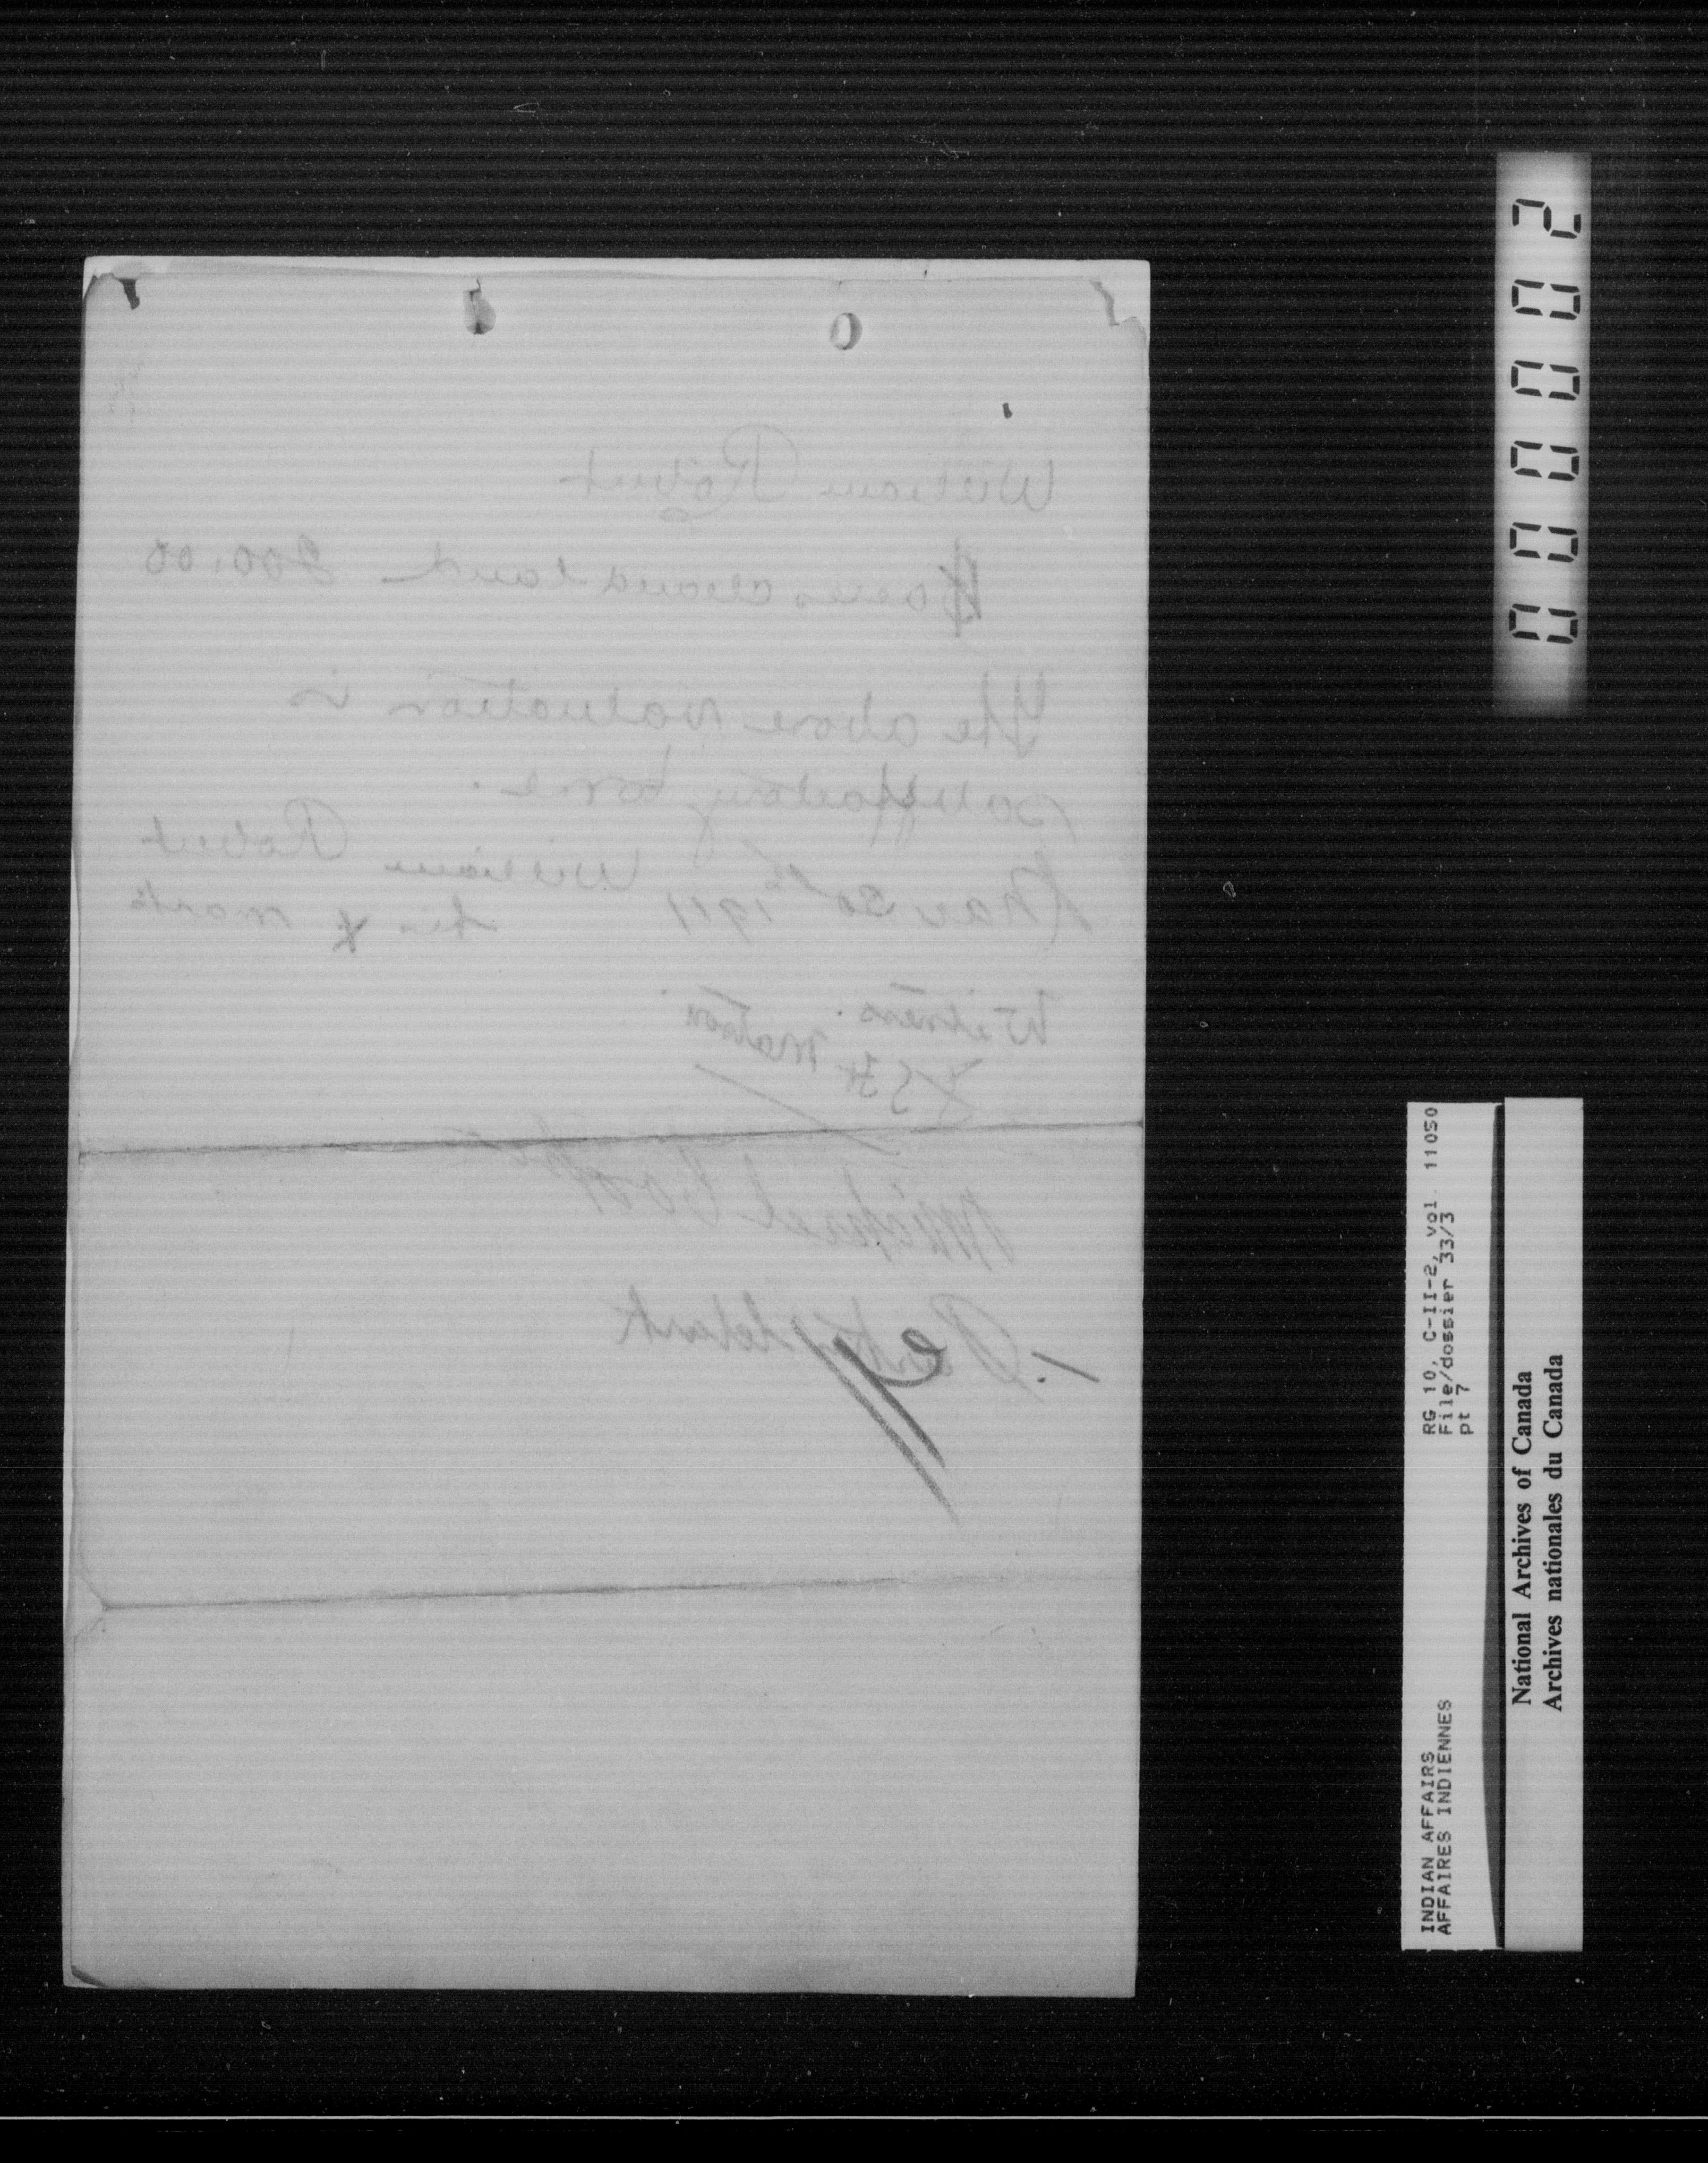 William Robert
acres cleared land 200.00
The above valuation is
satisfactory to me.
Mar 30th 1911 William Robert
his x mark
Witness.
Michael
000002
RG 10, C-II-2, vol. 11050
File/dossier 33/3
pt 7
INDIAN AFFAIRS
AFFAIRES INDIENNES
National Archives of Canada
Archives nationales du Canada